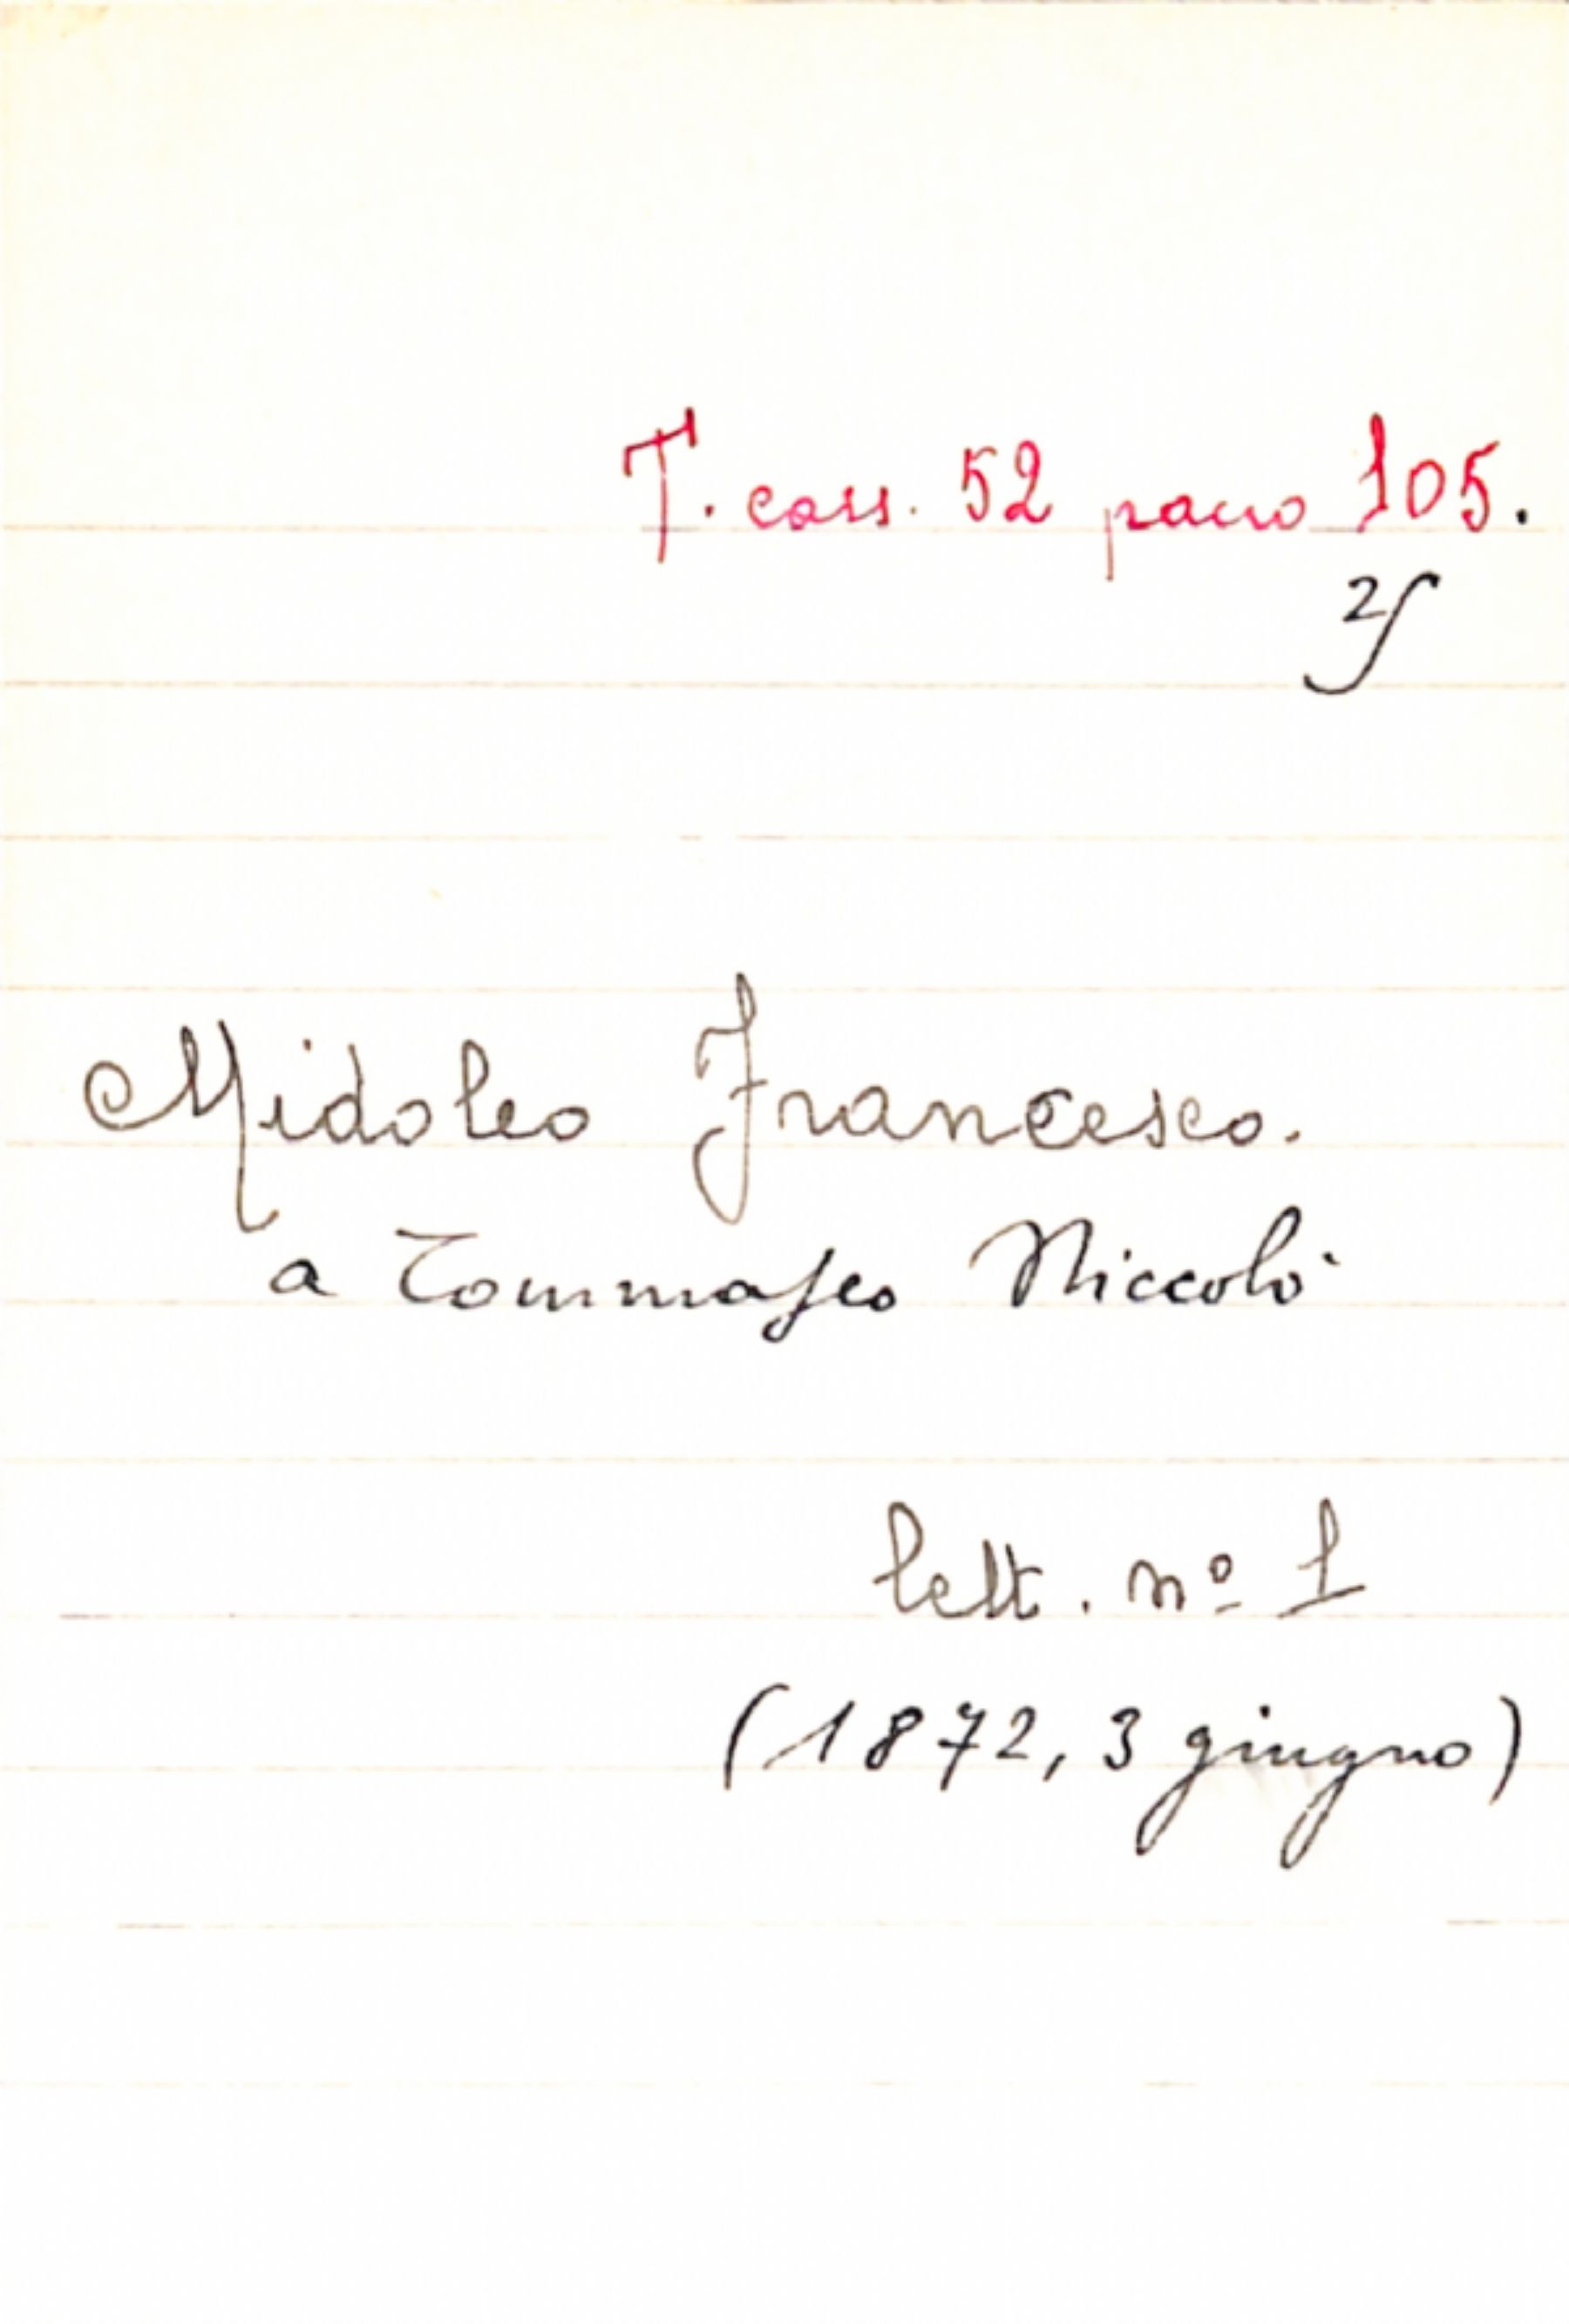 T. cass. 52 pacco 105.
25
Midoleo Francesco.
a Tommaseo Niccolò
lett. nº 1
(1872, 3 giugno)